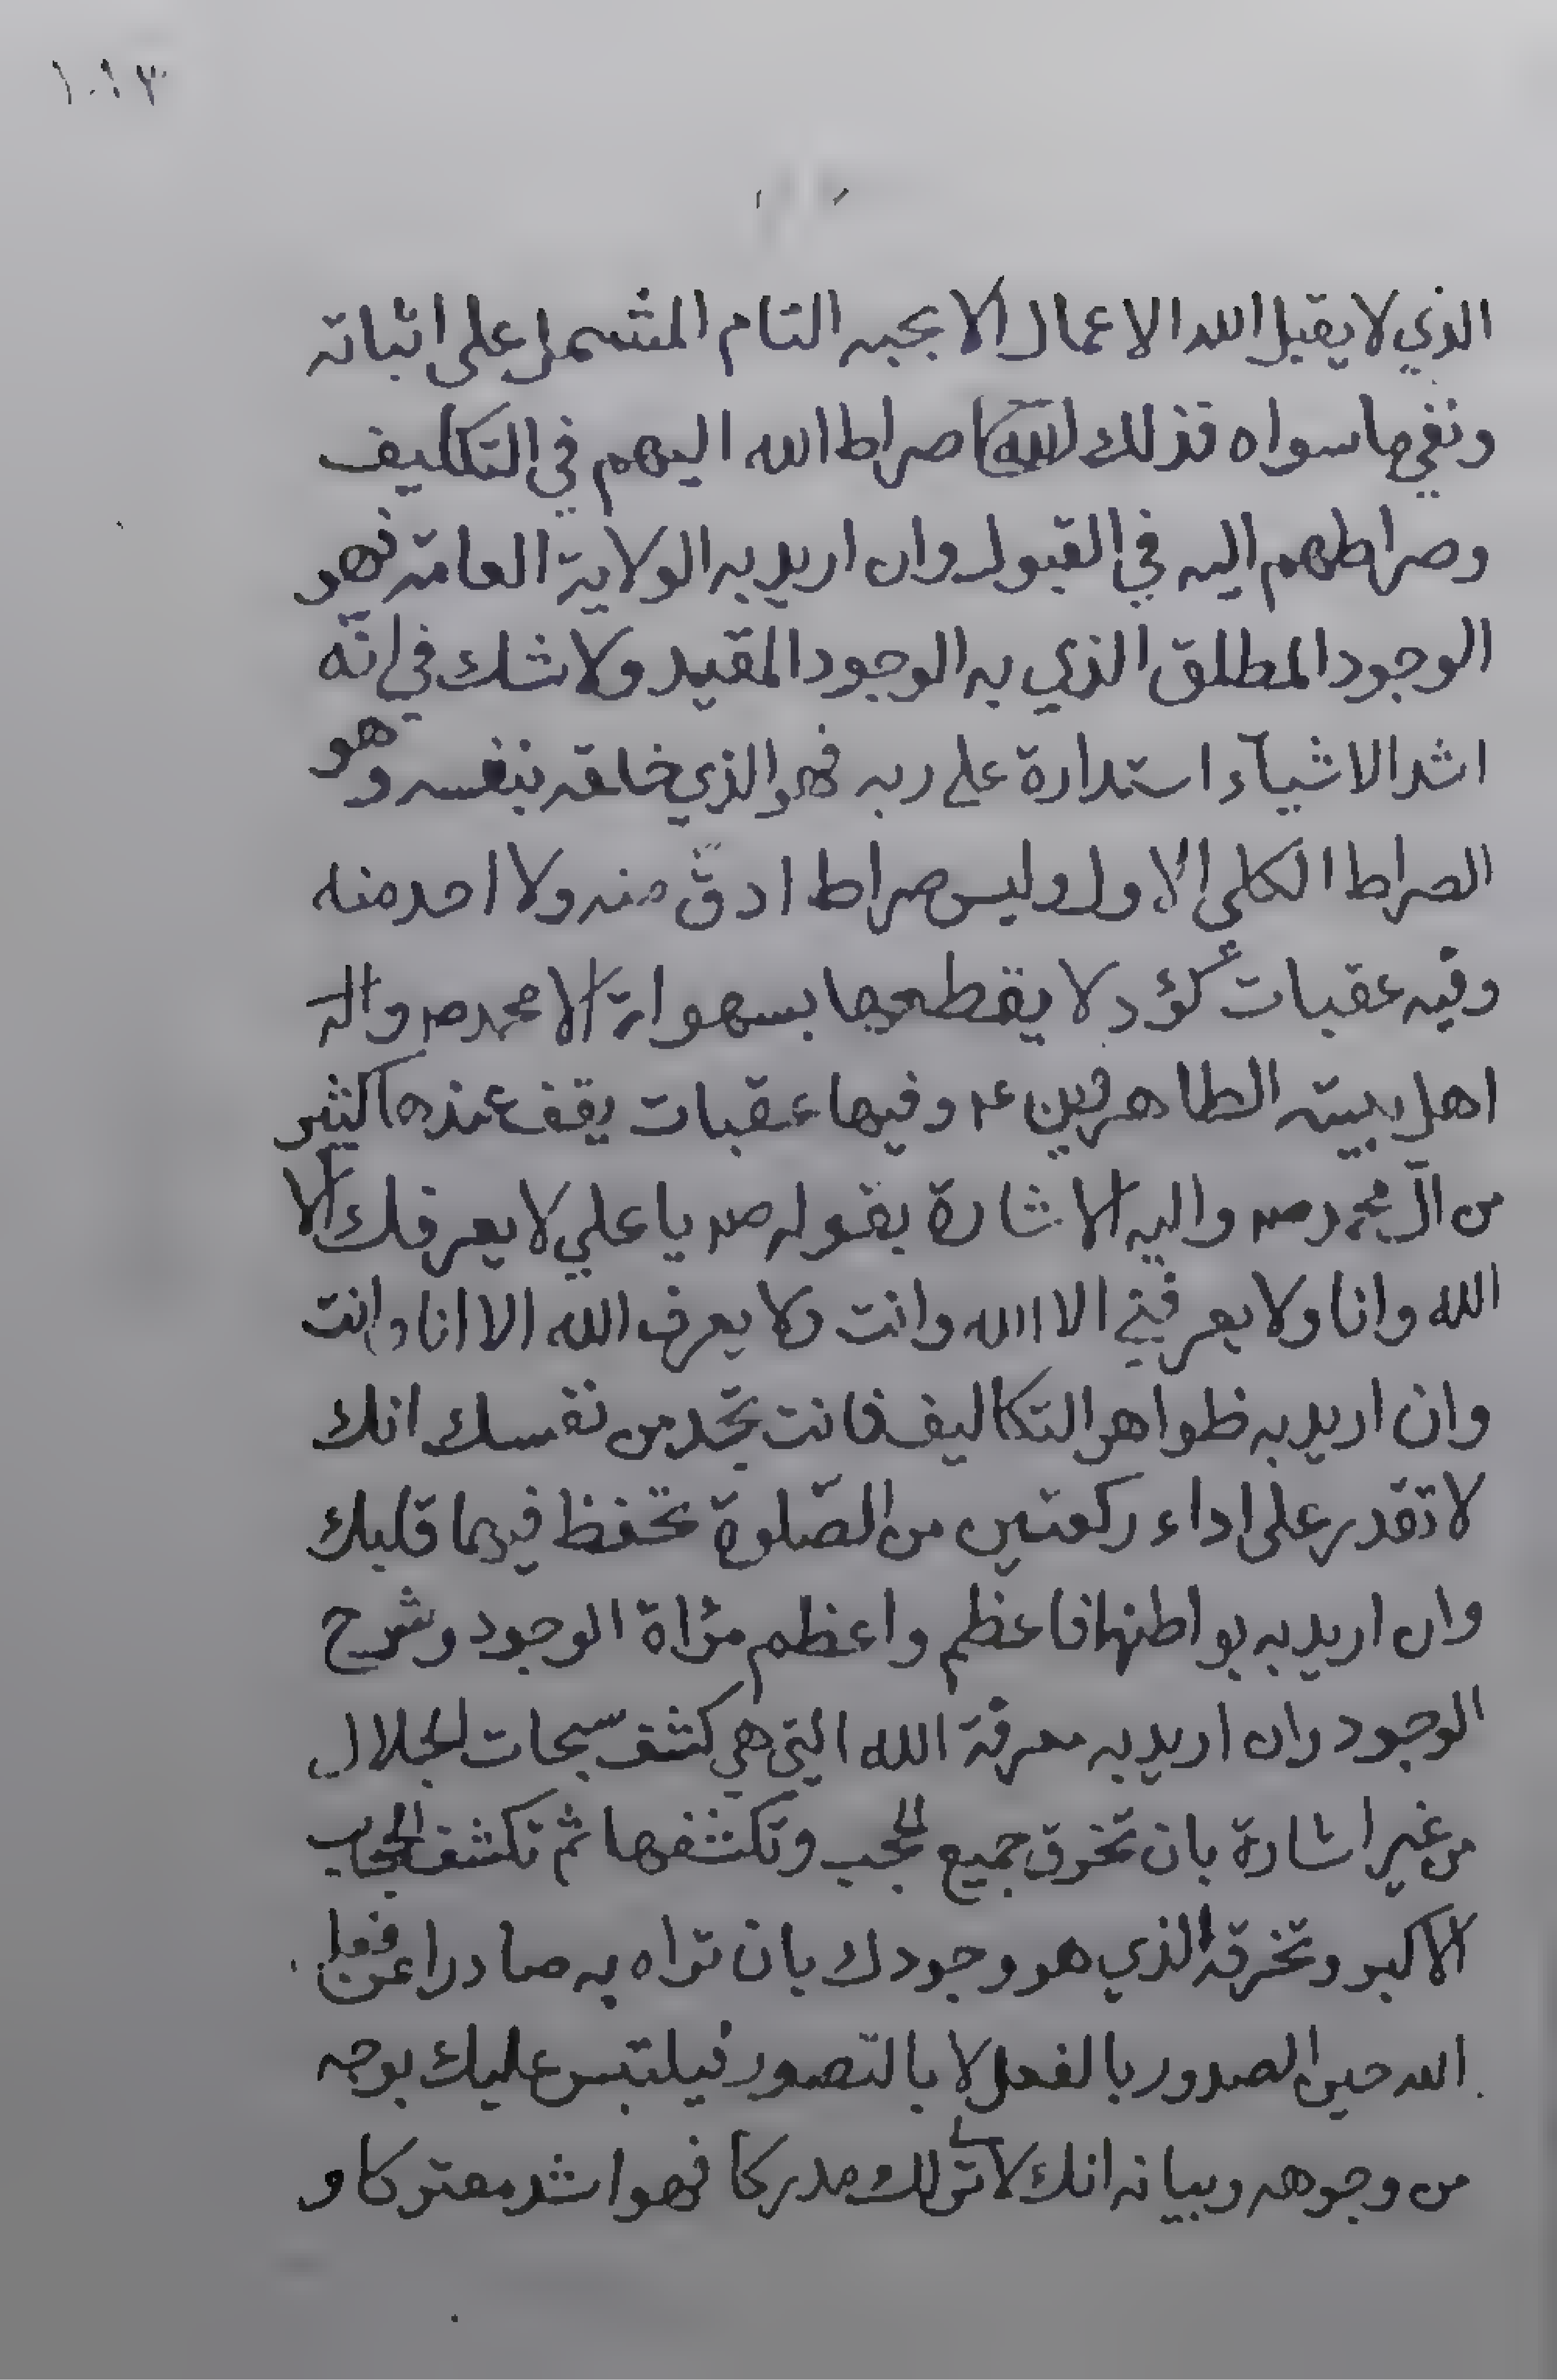 ١٠٩٣
الذي لا يقبل الله الاعمال الا بحبه التام المشتمل على اثباته
ونفي ما سواه فذلك صراط الله اليهم في التكليف
وصراطهم اليه في القبول وان اريد به الولاية العامة فهو
الوجود المطلق الذي به الوجود المقيد ولا شك في انّه
اشد الاشيآء استدارة على ربه فهو الذي خلقه بنفسه وهو
الصراط الكلي الاول وليس صراط ادقّ منه ولا احد منه
وفيه عقبات كؤد لا يقطعها بسهولة الا محمد ص واله
اهل بيته الطاهرين ع وفيها عقبات يقف عندها كثير
من آل محمد ص واليه الاشارة بقوله ص يا علي لا يعرفك الا
الله وانا ولا يعرفني الا الله وانت ولا يعرف الله الا انا وانت
وان اريد به ظواهر التكاليف فانت تجد من نفسك انك
لا تقدر على اداء ركعتين من الصّلوة تحفظ فيهما قلبك
وان اريد به بواطنها فاعظم واعظم مرٔاة الوجود وشرح
الوجود وان اريد به معرفة الله التي هي كشف سبحات الجلال
من غير اشارة بان تخرق جميع الحجب وتكشفها ثم تكشف الحجاب
الاكبر وتخرقه الذي هو وجودك بان تراه به صادرا عن فعل
الله حين الصدور بالفعل لا بالتصور فيلتبس عليك بوجه
من وجوهه وبيانه انك لا ترى لك مدركا فهو اشد معتركا و